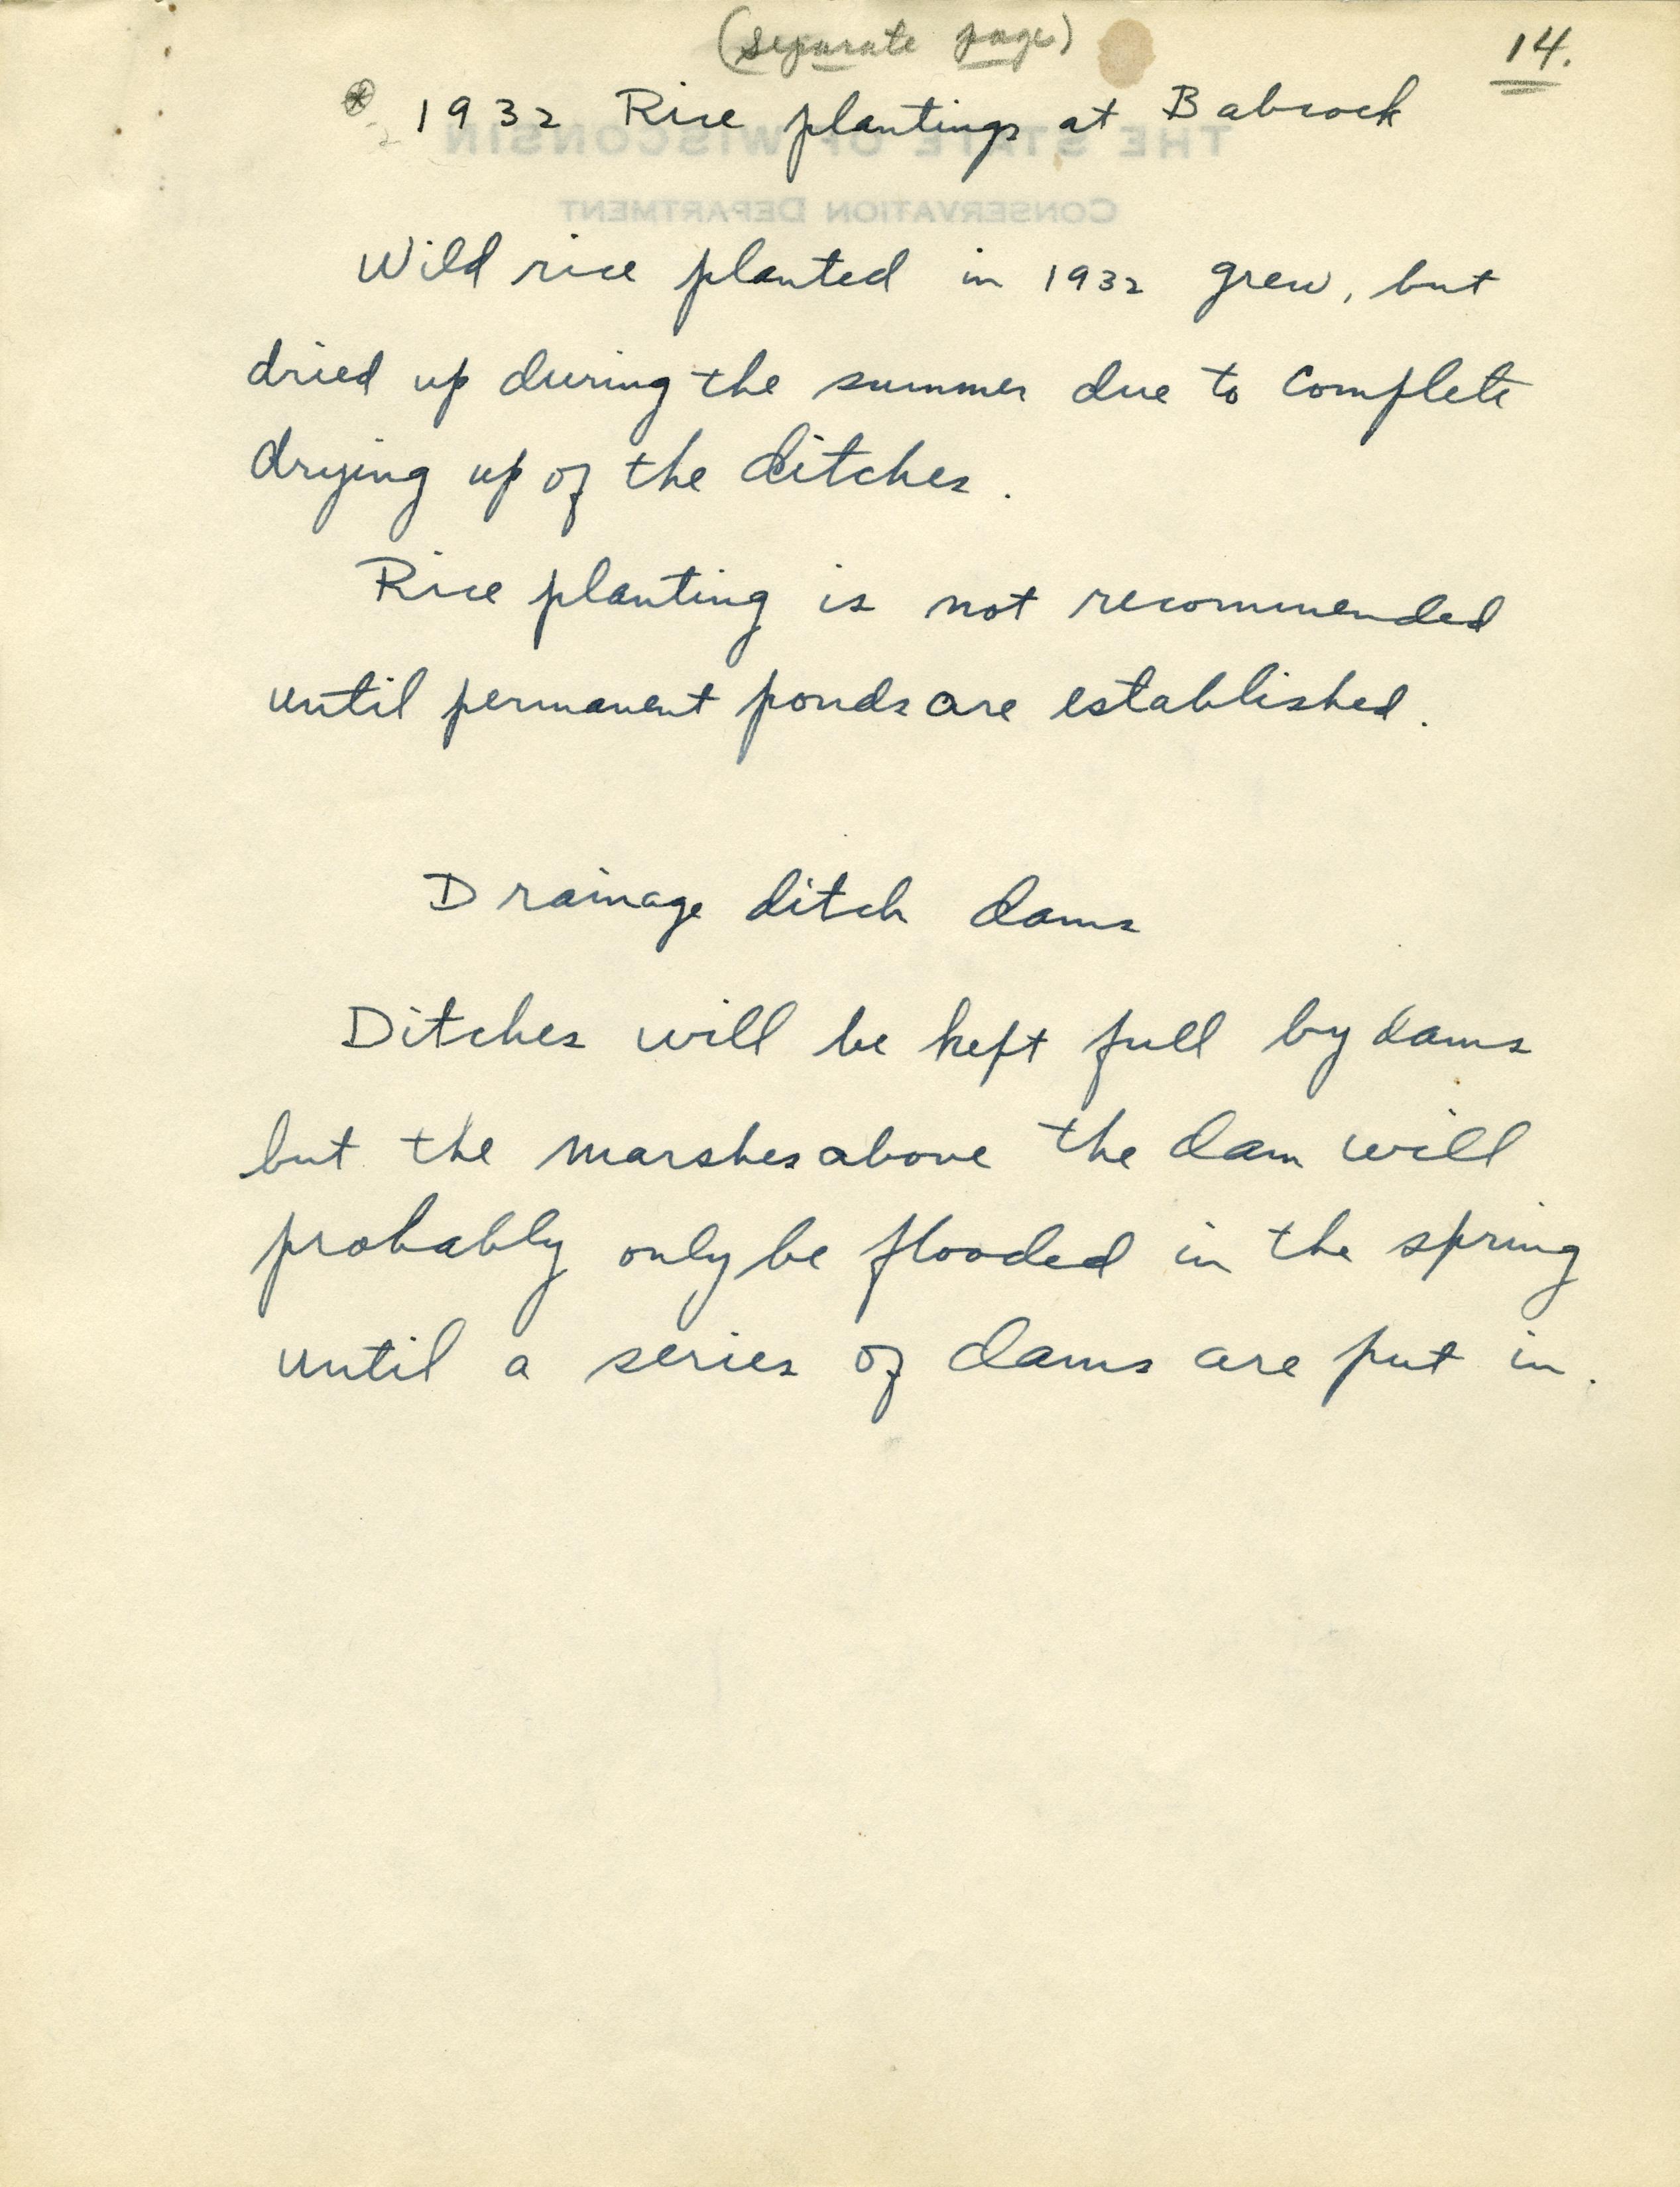 (separate page)
14.
* 1932 Rice plantings at Babcock
THE STATE OF WISCONSIN
CONSERVATION DEPARTMENT
Wild rice planted in 1932 grew, but
dried up during the summer due to complete
drying up of the ditches.
Rice planting is not recommended
until permanent ponds are established.
Drainage ditch dams
Ditches will be kept full by dams
but the marshes above the dam will
probably only be flooded in the spring
until a series of dams are put in.